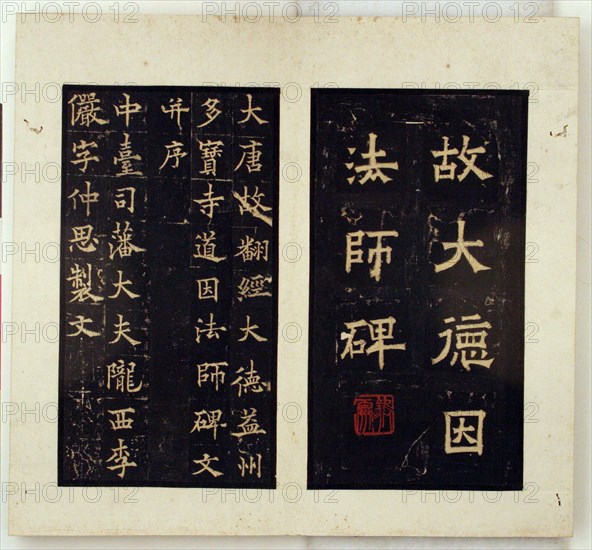 故大德因
法師碑
大唐故翻經大德益州
多寶寺道因法師碑文
并序
中臺司藩大夫隴西李
儼字仲思製文
PHOTO 12